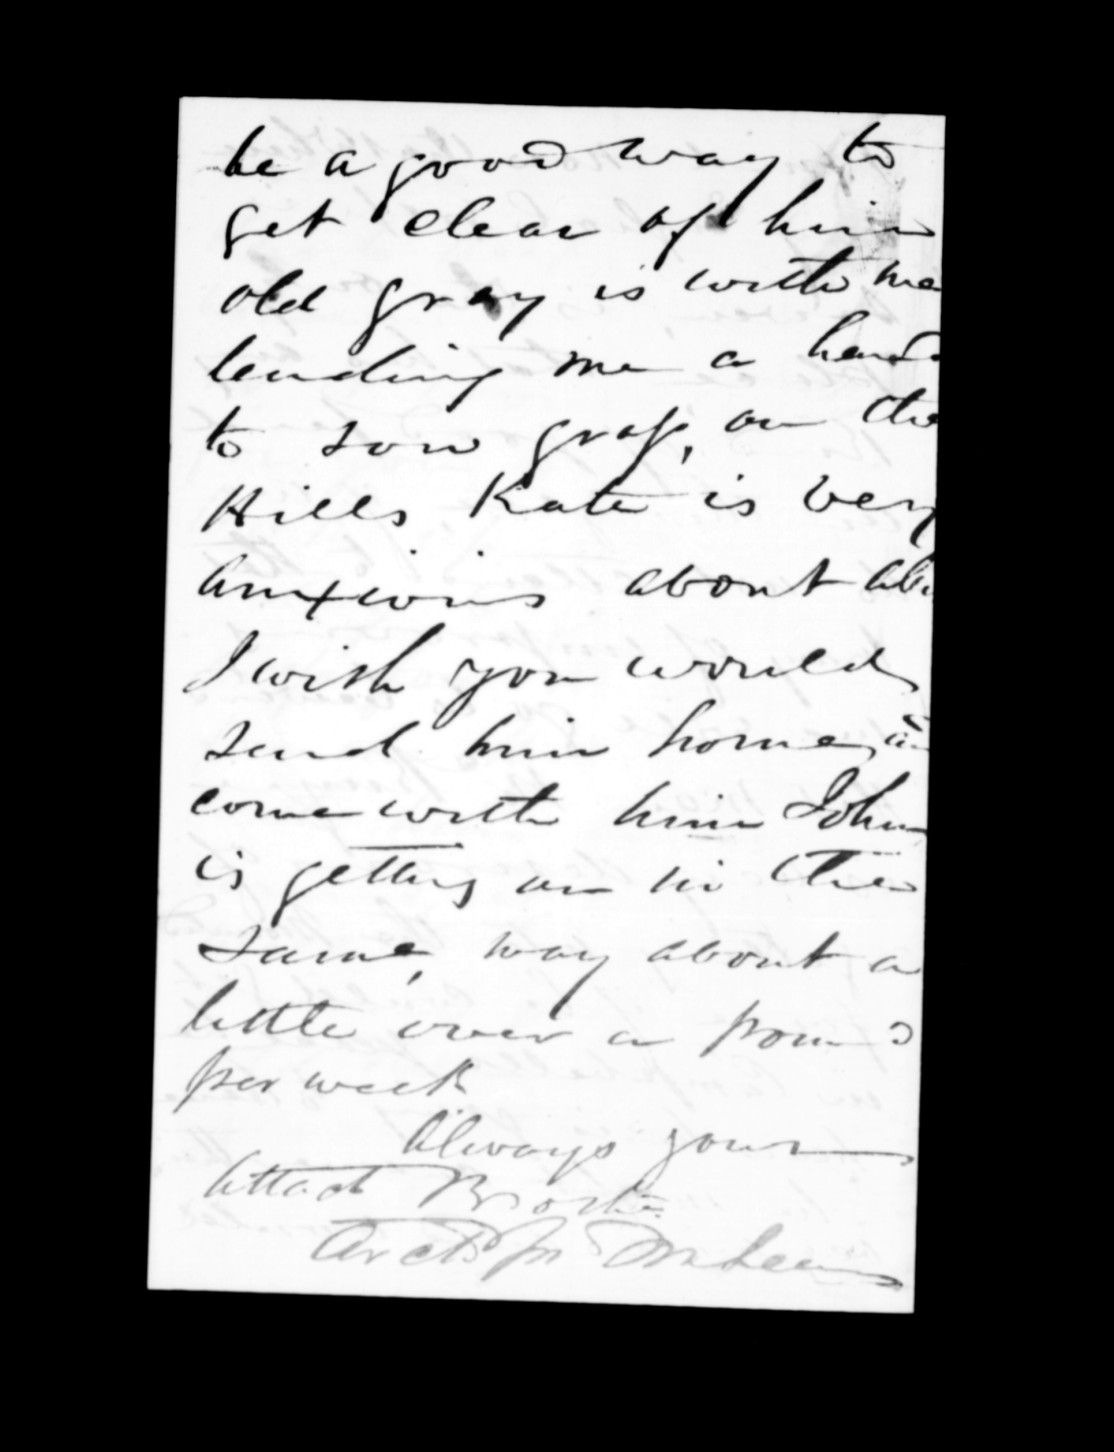 be a good way to
get clear of him
old gray is with me
lending me a hand
to sow grass, on the
Hills Kate is very
anxious about
I wish you would
send him home,
come with him John
is getting on in the
same, way about a
little over a pound
per week
Always yours
Attact Brother
Archd Jn McLean